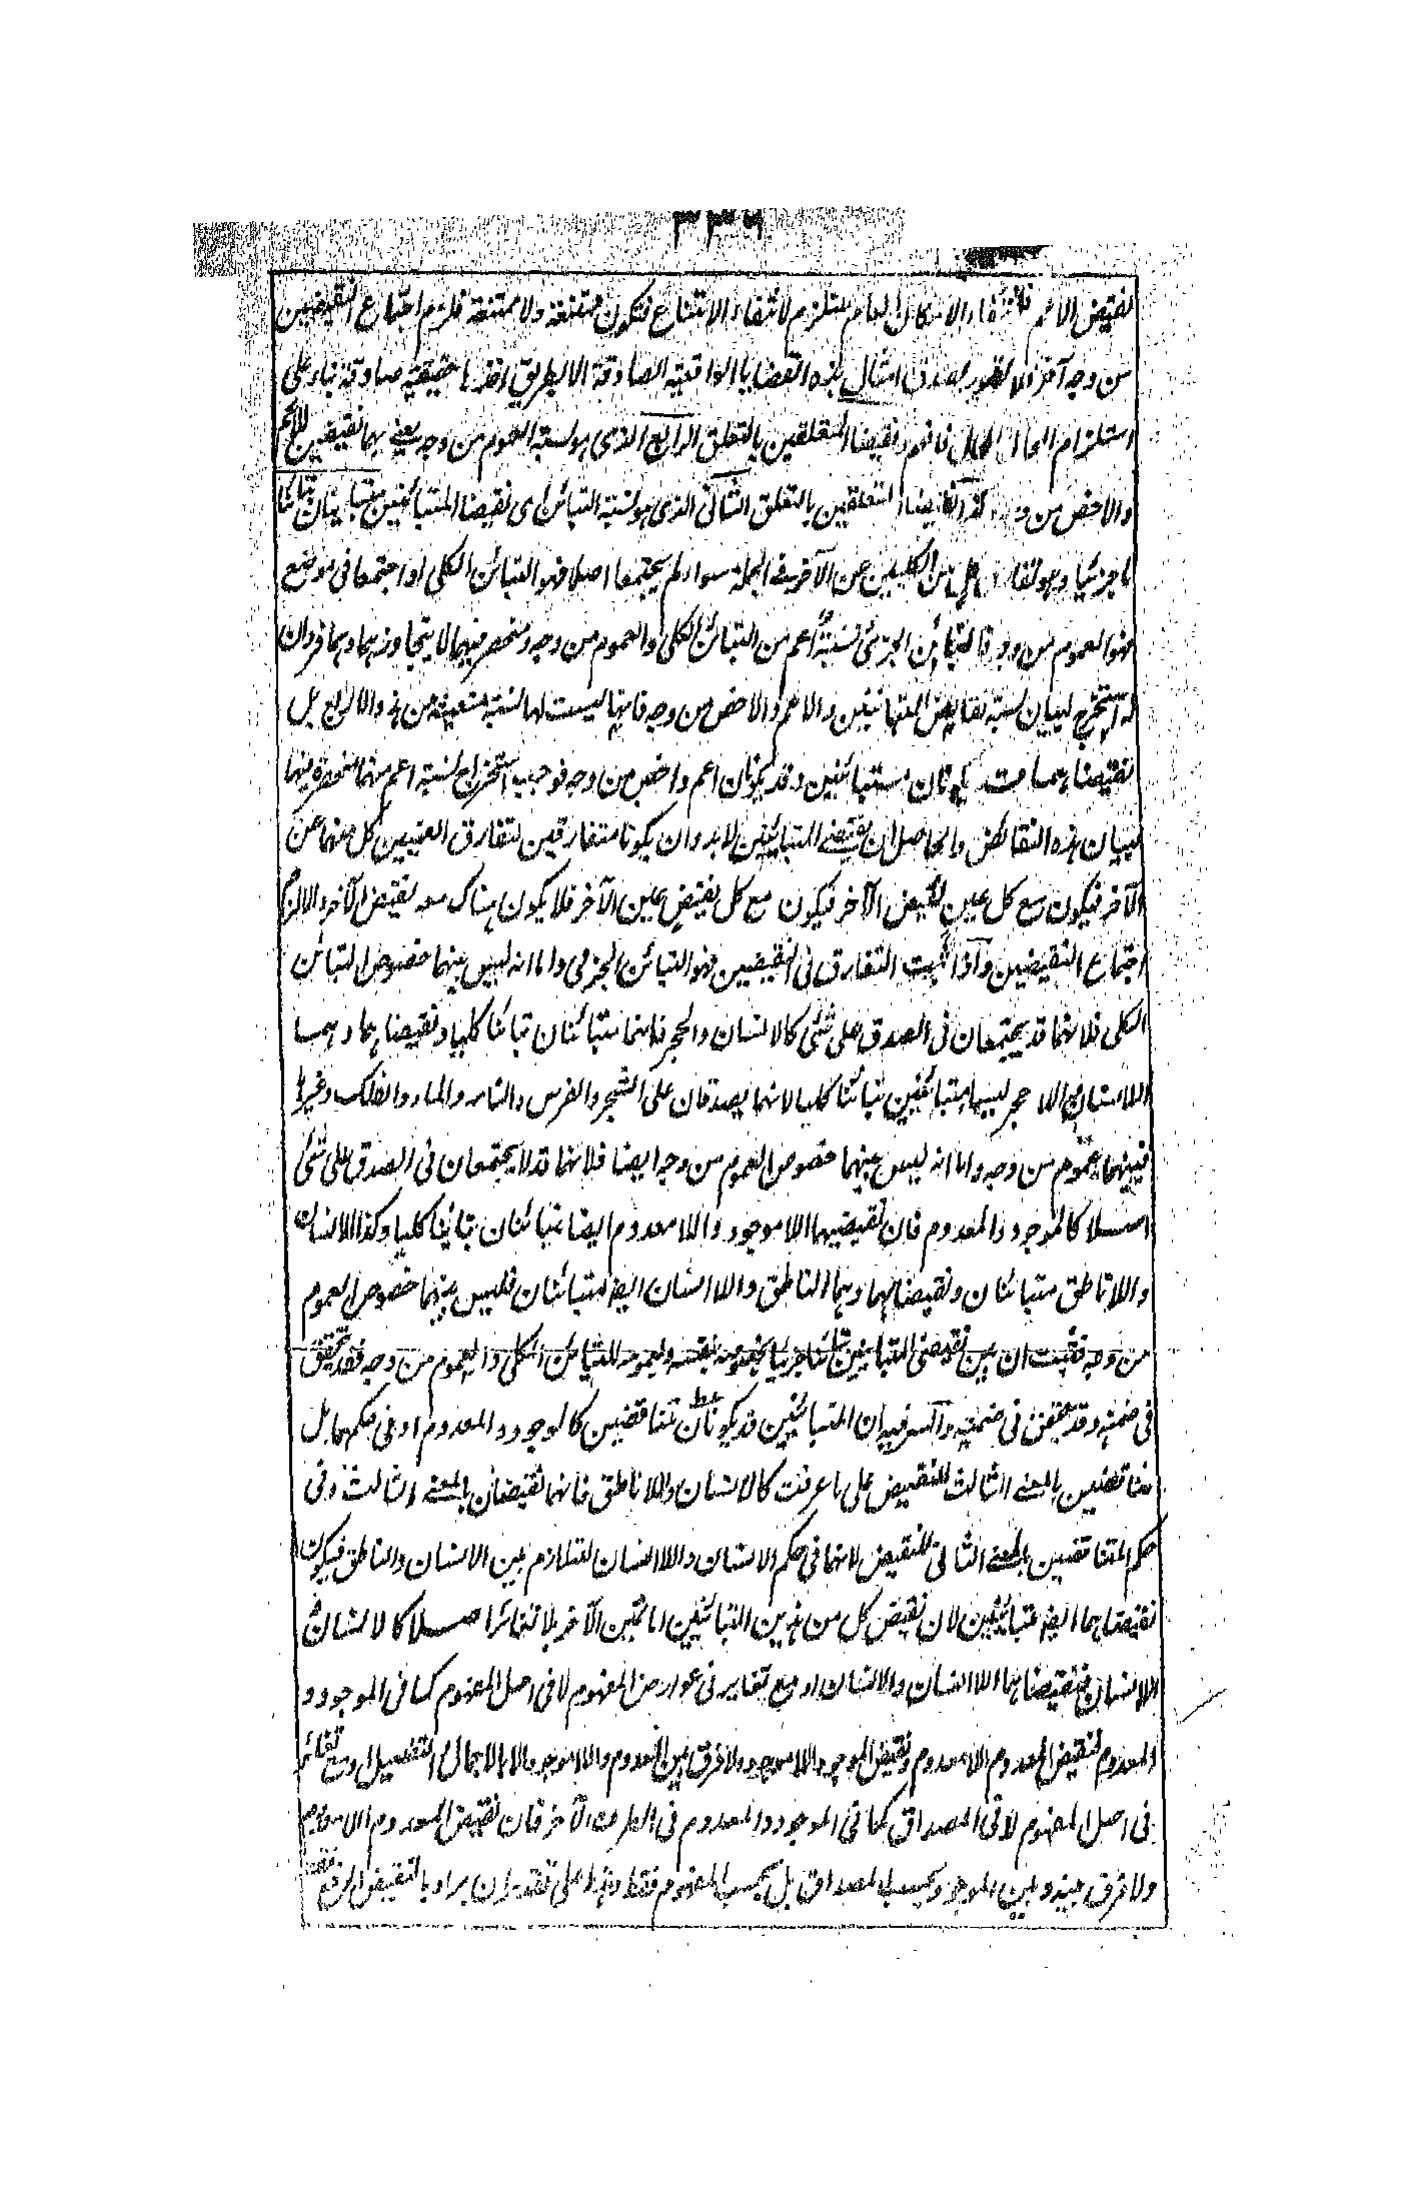 ٣٣٦
نقيض الاعم فانتفاء الامكان العام مستلزم لانتفاء الامتناع فتكون ممتنعة ولا ممتنعة فلزم اجتماع النقيضين
من وجه آخر ولا يظهر صدق امثال هذه القضايا الواقعية الصادقة الا بطريق اخذها حقيقية صادقة بناء على
استلزام المحال المحال فافهم ونقيضا المتعلقين بالتعلق الرابع الذى هو نسبة العموم من وجه يعنى بهما نقيضين للاعم
والاخص من وجه كذا نقيضا المتعلقين بالتعلق الثانى الذى هو نسبة التباين اى نقيضا المتبائنين متبائنان تبائنا
جزئيا وهو تفارق كل من الكليين عن الآخر فى الجملة سواء لم يجتمعا اصلا فهو التبائن الكلى او اجتمعا فى موضع
فهو العموم من وجه فالتبائن الجزئى نسبة اعم من التبائن الكلى والعموم من وجه ومنحصر فيهما لا يتجاوزهما وهما فردان
له استخرج لبيان نسبة نقايض المتبائنين والاعم والاخص من وجه فانها ليست لها نسبة متعينة من هذه الاربع بل
نقيضاهما قد يكونان متبائنين وقد يكونان اعم واخص من وجه فوجب استخراج نسبة اعم منهما منحصرة فيهما
لبيان هذه النقائض والحاصل ان نقيضى المتبائنين لابد وان يكونا متفارقين لتفارق العينين كل منهما عن
الآخر فيكون مع كل عين نقيض الآخر فيكون مع كل نقيض عين الآخر فلا يكون هناك معه نقيض الآخر والا لزم
اجتماع النقيضين واذا ثبت التفارق فى النقيضين فهو التبائن الجزئى واما انه ليس بينهما خصوص التبائن
الكلى فلانهما قد يجتمعان فى الصدق على شئ كالانسان والحجر فانهما متبائنان تبائنا كليا ونقيضاهما وهما
اللاانسان واللا حجر ليسا متبائنين تبائنا كليا لانهما يصدقان على الشجر والفرس والنار والماء والفلك وغيرها
فبينهما عموم من وجه واما انه ليس بينهما خصوص العموم من وجه ايضا فلانهما قد لا يجتمعان فى الصدق على شئ
اصلا كالموجود والمعدوم فان نقيضيهما اللا موجود واللا معدوم ايضا متبائنان تبائنا كليا وكذا الانسان
واللا ناطق متبائنان ونقيضاهما وهما الناطق واللا انسان ايضا متبائنان فليس بينهما خصوص العموم
من وجه فثبت ان بين نقيضى المتبائنين تبائنا جزئيا بخصوصه بنفسه وبعمومه للتبائن الكلى والعموم من وجه فقد يتحقق
فى ضمنه وقد يتحقق فى ضمنه والسر فيه ان المتبائنين قد يكونان متناقضين كالموجود والمعدوم او فى حكمهما بل
متناقضين بالمعنى الثالث للنقيض على ما عرفت كالانسان واللا ناطق فانهما نقيضان بالمعنى الثالث وفى
حكم المتناقضين بالمعنى الثانى للنقيض لانهما فى حكم الانسان واللاانسان للتلازم بين الانسان والناطق فيكون
نقيضاهما ايضا متبائنين لان نقيض كل من هذين المتبائنين اما عين الآخر بلا تغائر اصلا كالانسان و
اللاانسان فنقيضاهما اللاانسان والانسان او مع تغاير فى عوارض المفهوم لا فى اصل المفهوم كما فى الموجود و
المعدوم فنقيض المعدوم اللا معدوم ونقيض الموجود اللا موجود ولا فرق بين المعدوم واللا موجود الا بالاجمال والتفصيل او مع تغائر
فى اصل المفهوم لا فى المصداق كما فى الموجود والمعدوم فى الطرف الآخر فان نقيض المعدوم اللا معدوم
ولا فرق بينه وبين الموجود بحسب المصداق بل بحسب المفهوم فقط وهذا على تقدير ان يراد بالنقيض الرفع فقط